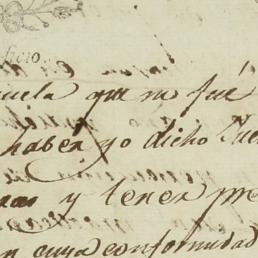 ficio.
uela que no fué
haber yo dicho Jue
y tener pre
n cuya conformidad